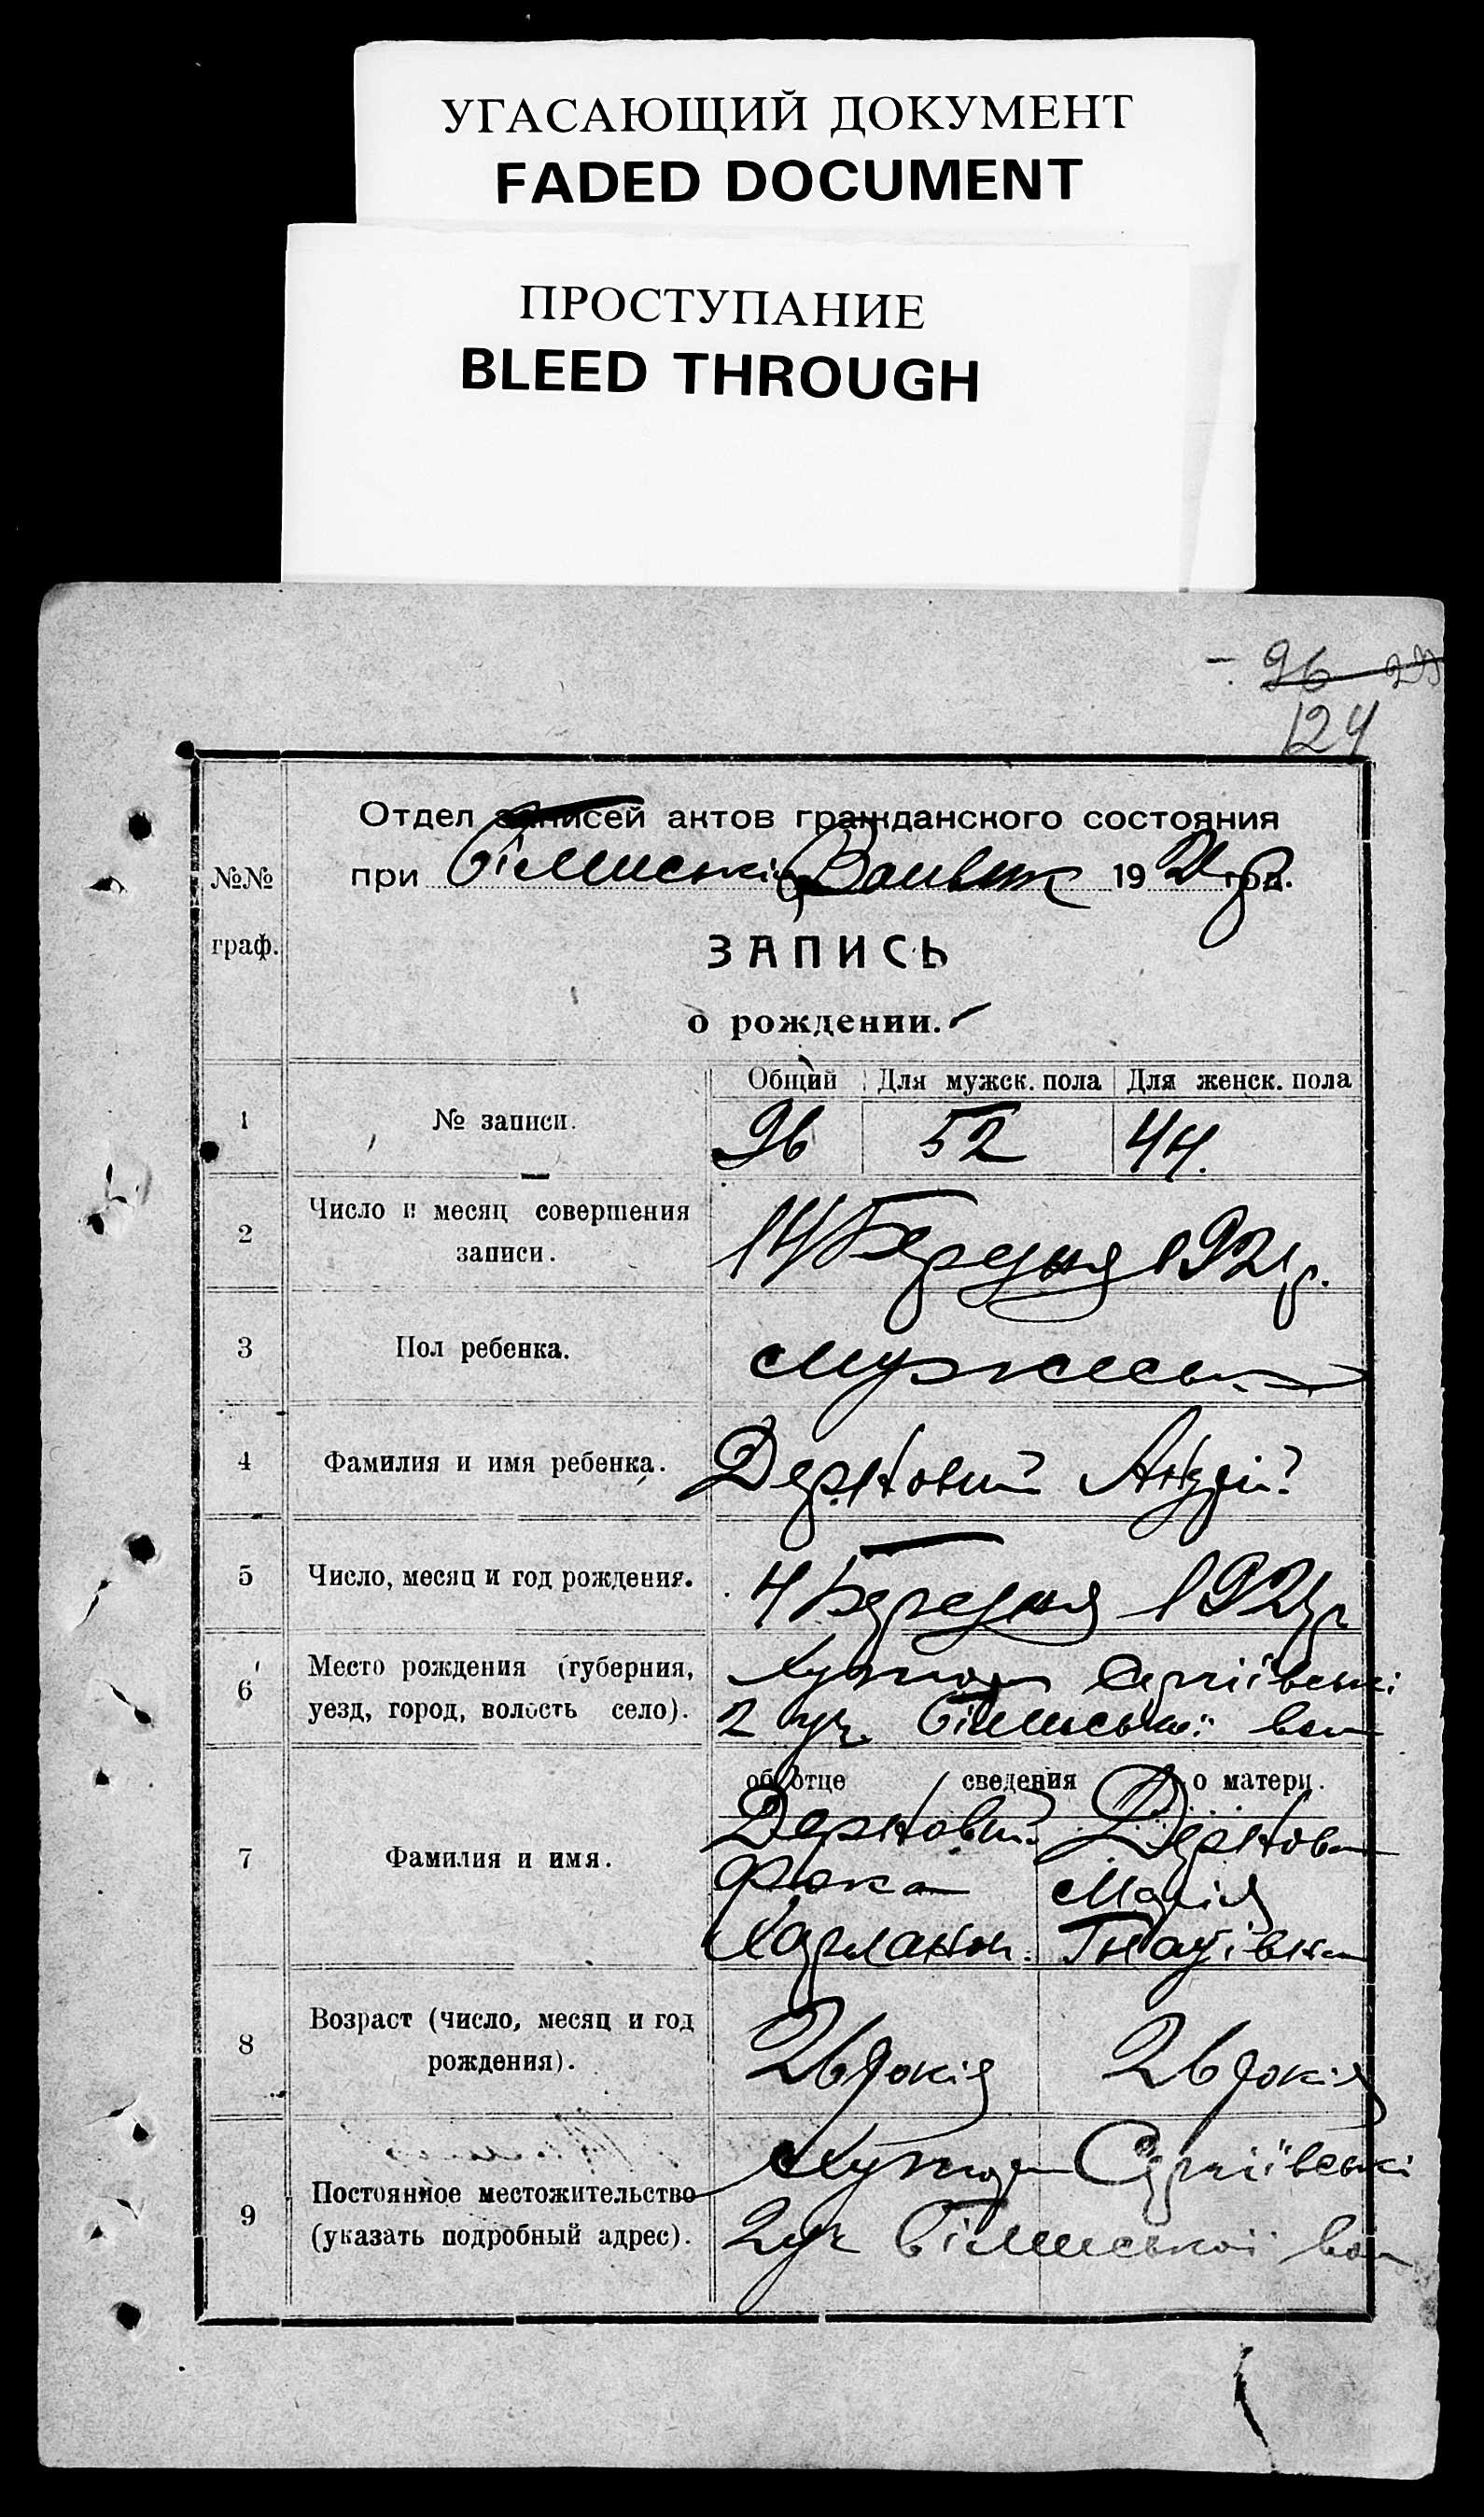 УГАСАЮЩИЙ ДОКУМЕНТ
FADED DOCUMENT
ПРОСТУПАНИЕ
BLEED THROUGH
96
124
Отдел записей актов гражданского состояния
при 19 21 год.
№№
граф.
ЗАПИСЬ
о рождении.
Общий Для мужск. пола Для женск. пола
1 № записи. 96 52 44.
2 Число и месяц совершения
записи. 14 Березня 1921 р.
3 Пол ребенка.
4 Фамилия и имя ребенка. Дерновий Андрій
5 Число, месяц и год рождения. 4 Березня 1921 р
6 Место рождения (губерния,
уезд, город, волость село). 2 уч.
об отце сведения о матери.
Дерновий Дернова
7 Фамилия и имя. Фока Марія
Харлаиов. Гнатівна
8 Возраст (число, месяц и год
рождения). 26 років 26 років
9 Постоянное местожительство
(указать подробный адрес). 2 уч